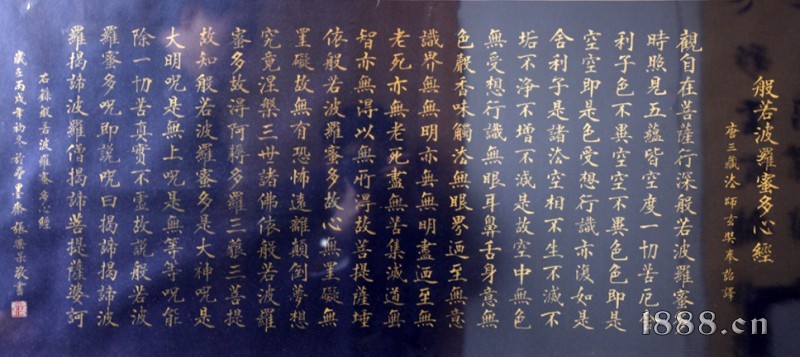 般若波羅蜜多心經
唐三藏法師玄奘奉詔譯
觀自在菩薩行深般若波羅蜜多
時照見五蘊皆空度一切苦厄舍
利子色不異空空不異色色即是
空空即是色受想行識亦復如是
舍利子是諸法空相不生不滅不
垢不淨不增不減是故空中無色
無受想行識無眼耳鼻舌身意無
色聲香味觸法無眼界迺至無意
識界無無明亦無無明盡迺至無
老死亦無老死盡無苦集滅道無
智亦無得以無所得故菩提薩埵
依般若波羅蜜多故心無罣礙無
罣礙故無有恐怖遠離顛倒夢想
究竟涅槃三世諸佛依般若波羅
蜜多故得阿耨多羅三藐三菩提
故知般若波羅蜜多是大神呪是
大明呪是無上呪是無等等呪能
除一切苦真實不虛故說般若波
羅蜜多呪即說呪曰揭諦揭諦波
羅揭諦波羅僧揭諦菩提薩婆訶
右錄般若波羅蜜多心經
歲在丙戌年初冬於齋張敬書
1888.cn